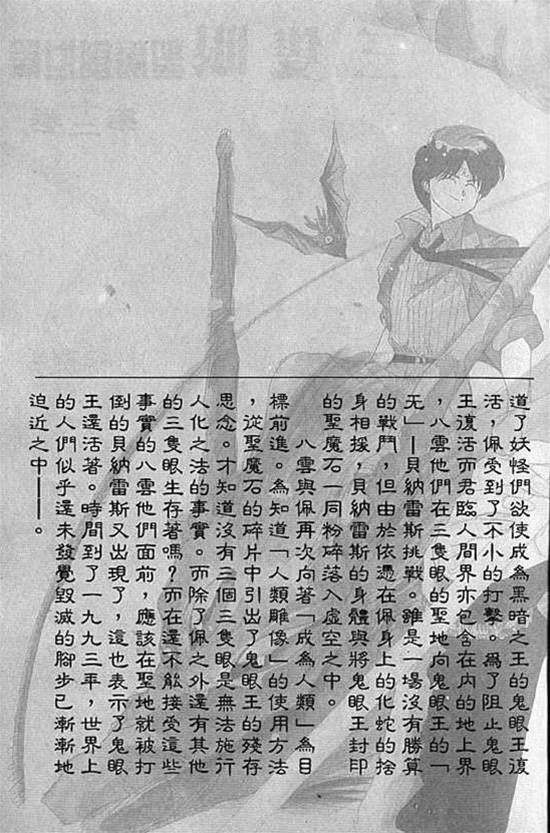 道了妖怪們欲使成為黑暗之王的鬼眼王復
活，佩受到了不小的打擊。為了阻止鬼眼
王復活而君臨人間界亦包含在內的地上界
，八雲他們在三隻眼的聖地向鬼眼王的「
无」—貝納雷斯挑戰。雖是一場沒有勝算
的戰鬥，但由於依憑在佩身上的化蛇的捨
身相援，貝納雷斯的身體與將鬼眼王封印
的聖魔石一同粉碎落入虛空之中。
八雲與佩再次向著「成為人類」為目
標前進。為知道「人類雕像」的使用方法
，從聖魔石的碎片中引出了鬼眼王的殘存
思念。才知道沒有三個三隻眼是無法施行
人化之法的事實。而除了佩之外還有其他
的三隻眼生存著嗎？而在還不能接受這些
事實的八雲他們面前，應該在聖地就被打
倒的貝納雷斯又出現了，這也表示了鬼眼
王還活著。時間到了一九九三年，世界上
的人們似乎還未發覺毀滅的腳步已漸漸地
迫近之中——。